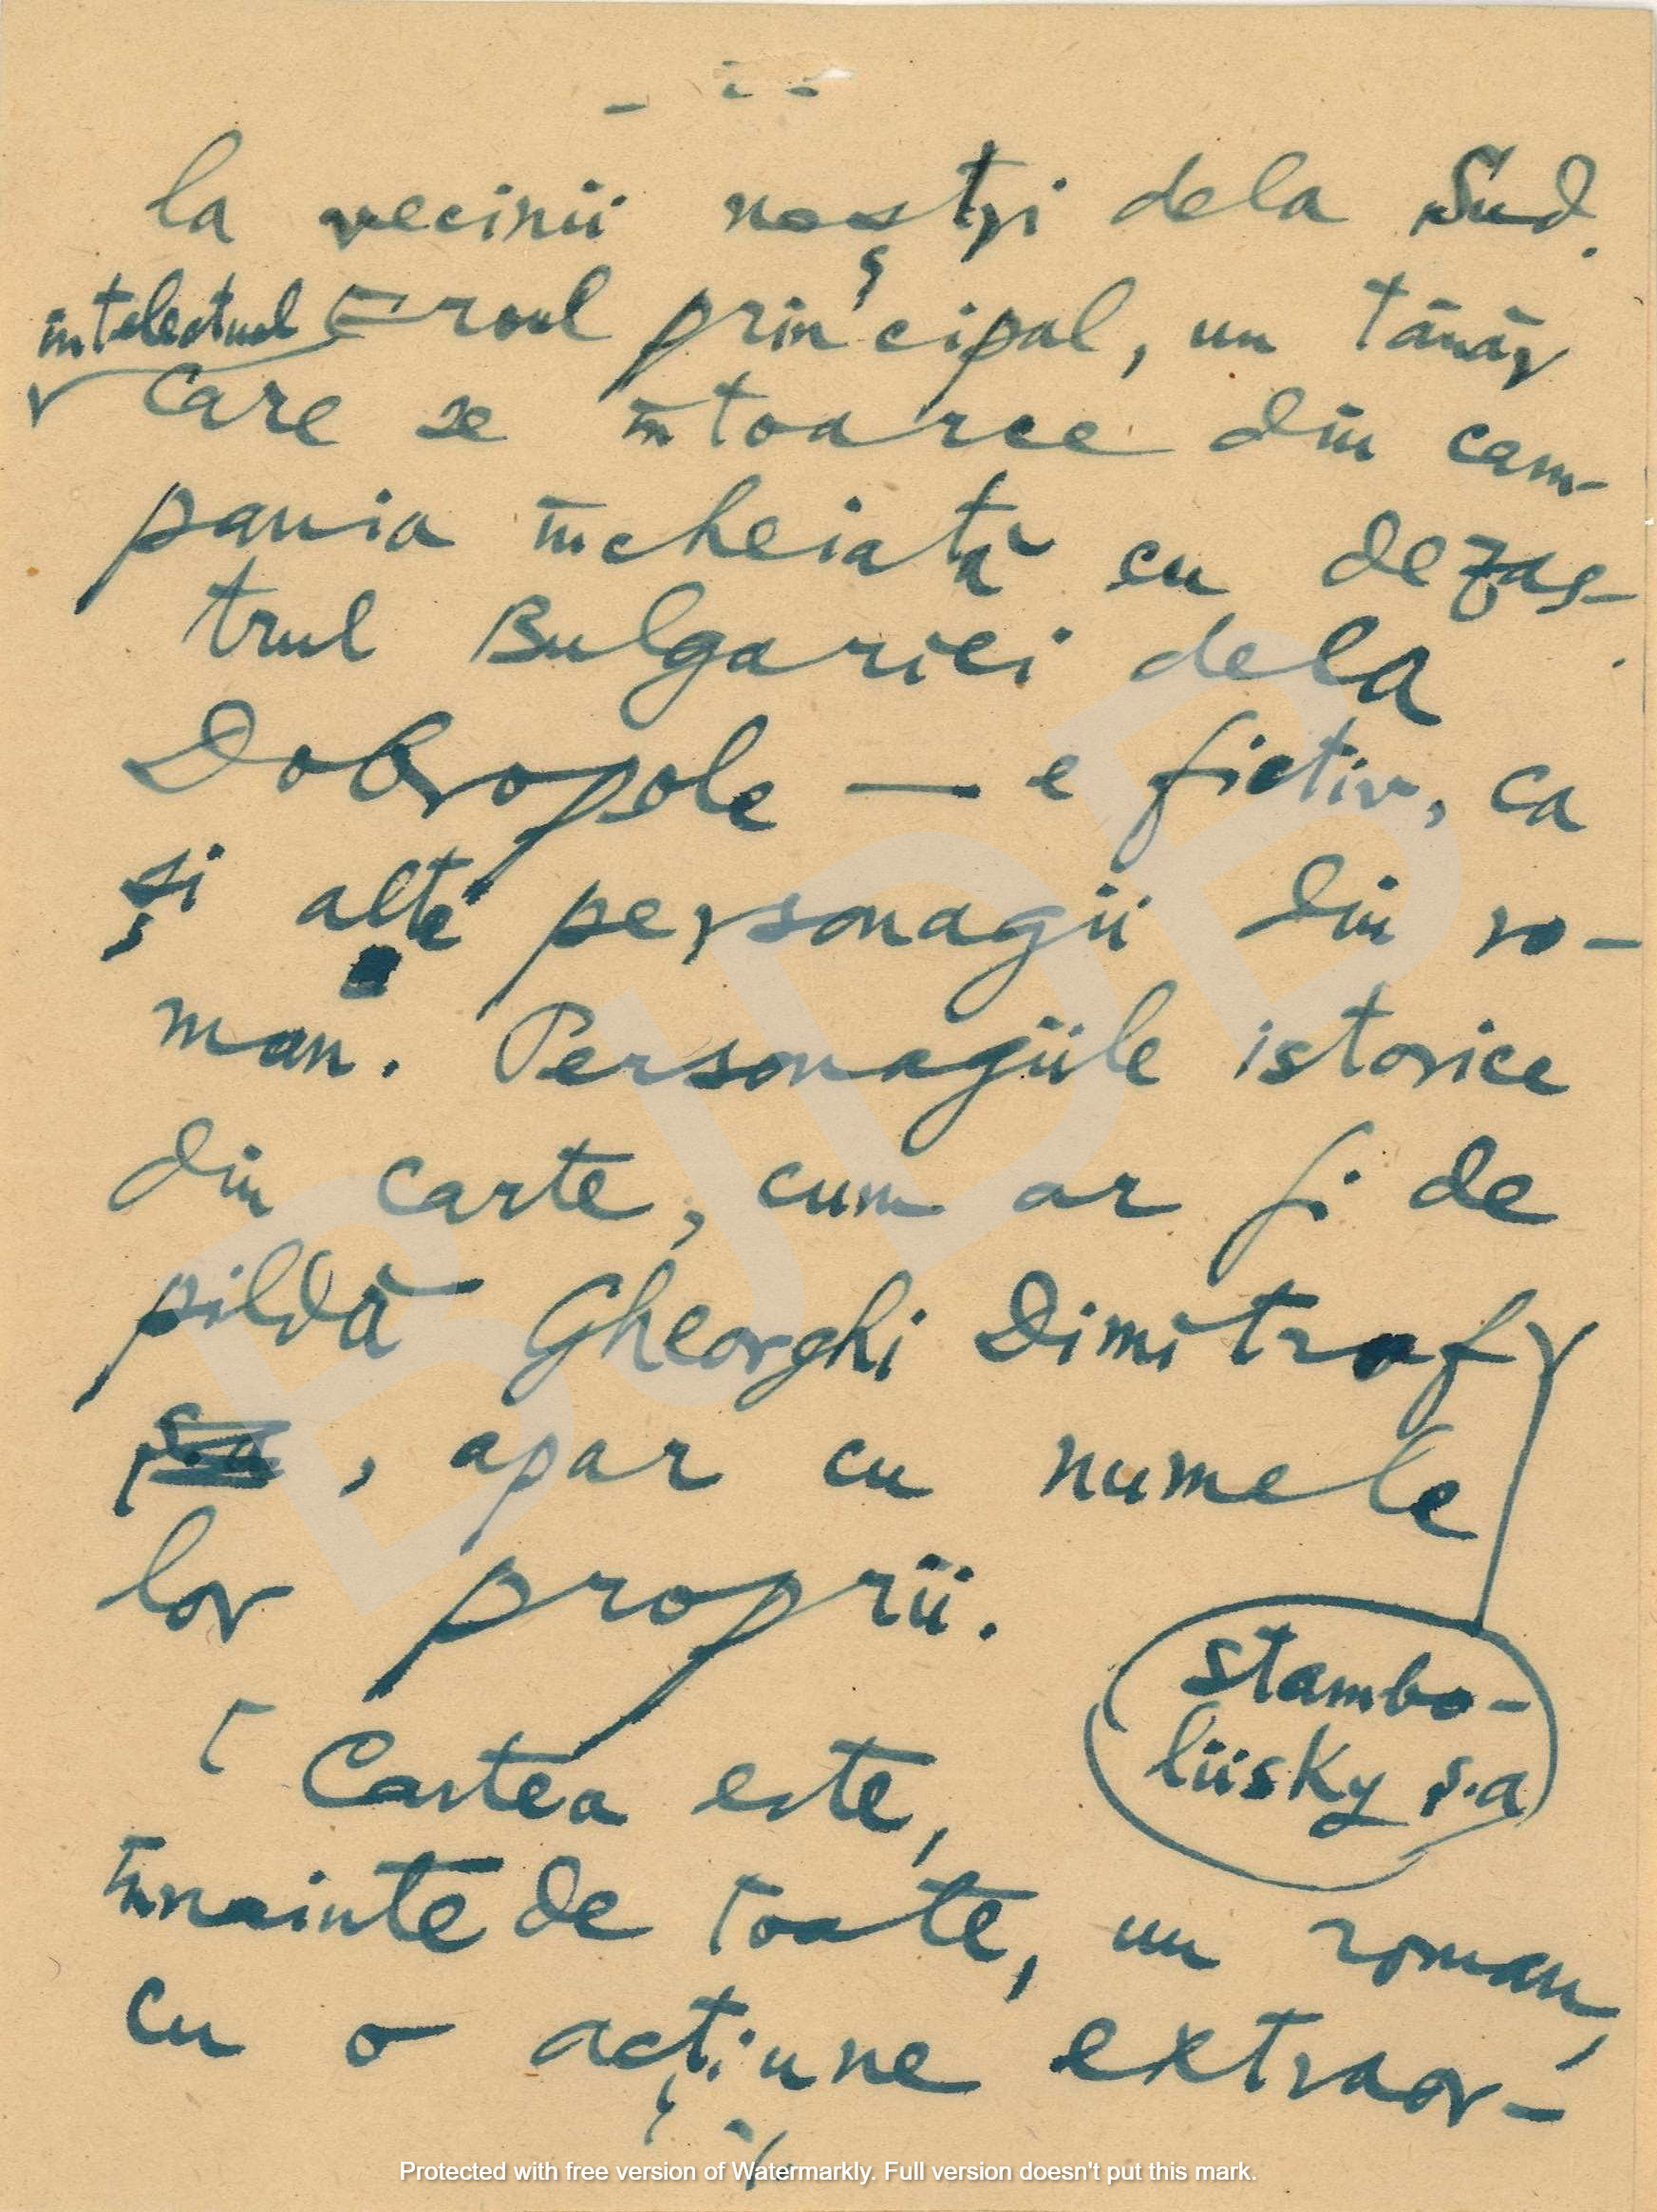 la vecinii noștri dela Sud.
Eroul principal, un tânăr
intelectual
care se întoarce din cam-
pania încheiată cu dezas-
trul Bulgariei dela
Dobropole — e fictiv, ca
și alte personagii din ro-
man. Personagiile istorice
din carte, cum ar fi de
pildă Gheorghi Dimitrof
ș.a, apar cu numele
lor proprii.
stambo-
liisky ș.a
Cartea este,
înainte de toate, un roman,
cu o acțiune extraor-
BJDB
Protected with free version of Watermarkly. Full version doesn't put this mark.